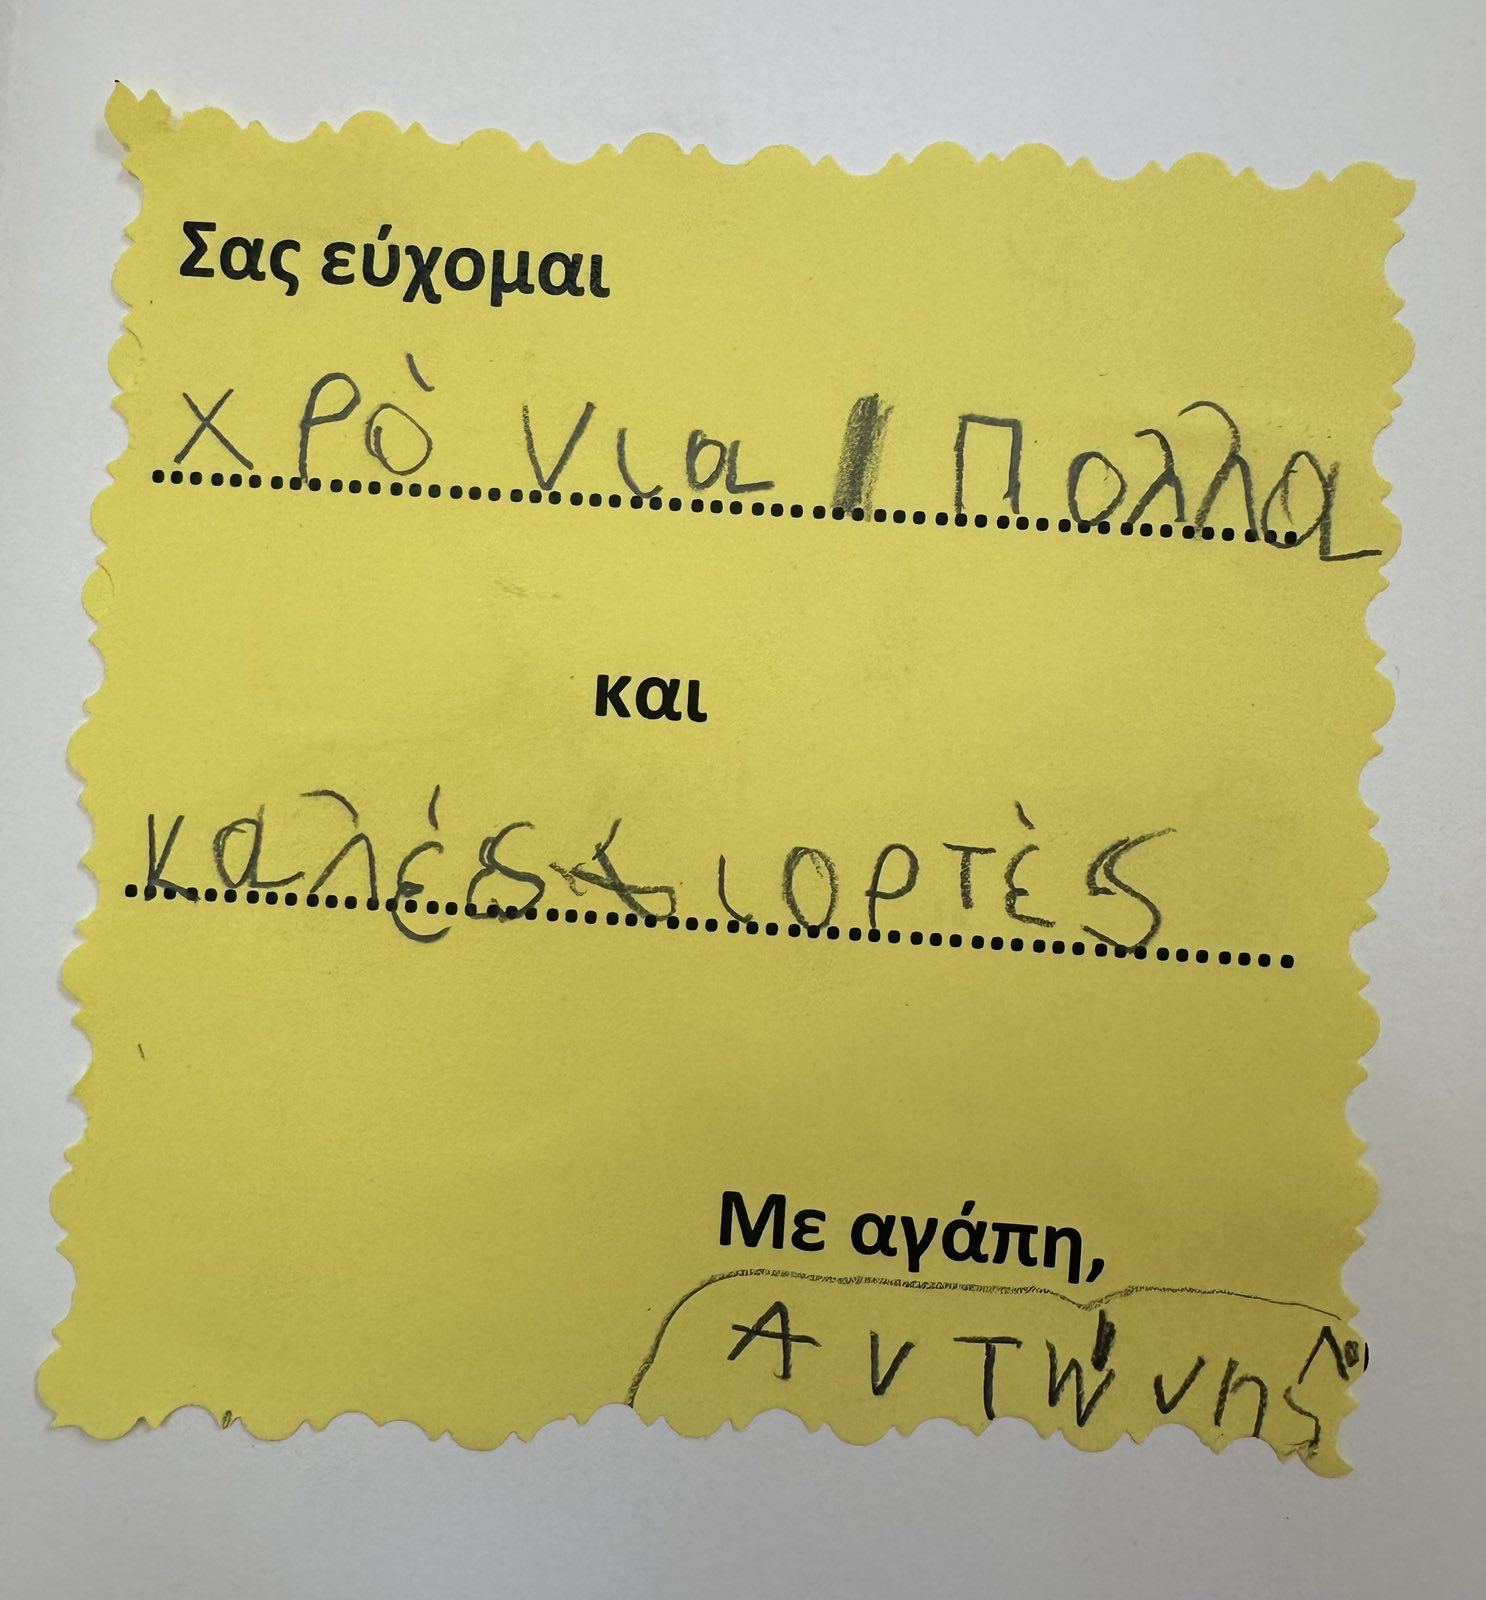 Σας εύχομαι
χρὸνια Πολλα
και
καλές ιορτὲς
Με αγάπη,
Αντώνης